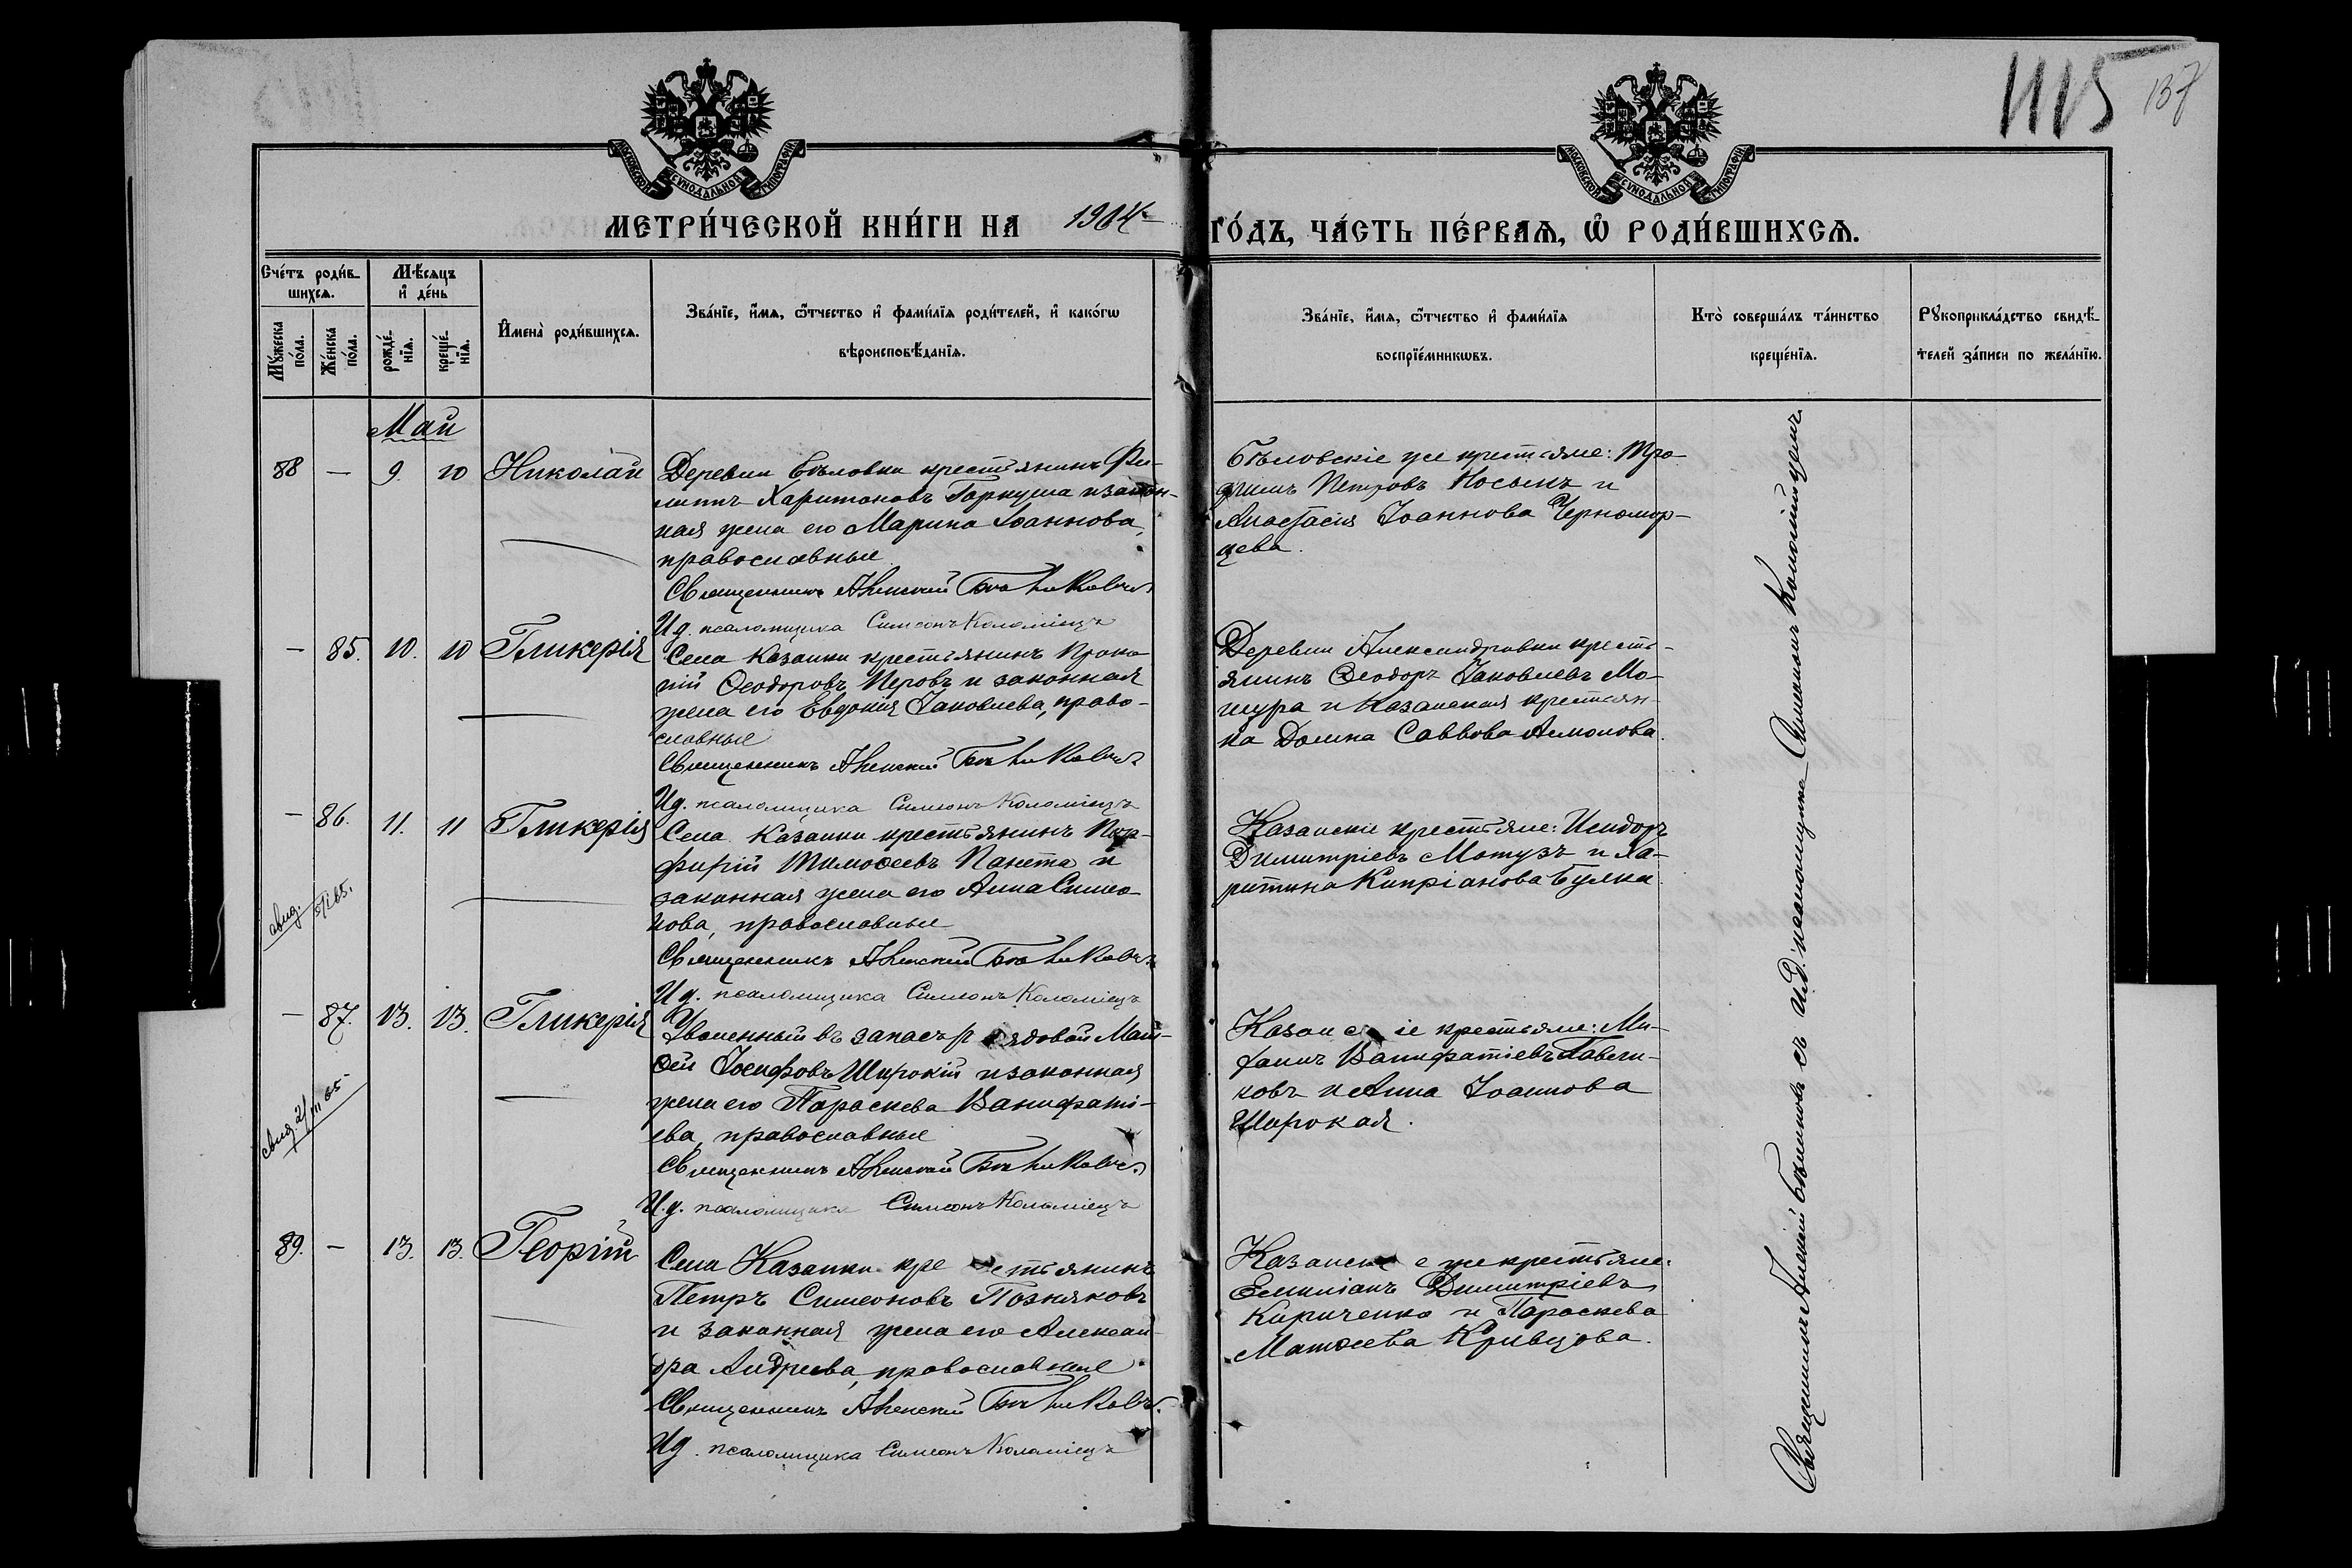 1115 137
МОСКОВСКОЙ СѴНОДАЛЬНОЙ ТИПОГРАФІИ
МОСКОВСКОЙ СѴНОДАЛЬНОЙ ТИПОГРАФІИ
МЕТРИ́ЧЕСКОЙ КНИ́ГИ НА 1904 ГО́ДЪ, ЧА́СТЬ ПЕ́РВАѦ, Ѡ҆ РОДИ́ВШИХСѦ.
Сче́тъ роди́в-
шихсѧ.
Мѣ́сѧцъ
и҆ де́нь
Мꙋ́жеска
по́ла.
Же́нска
по́ла.
рожде́-
нїѧ.
креще́-
нїѧ.
И҆мена̀ роди́вшихсѧ.
Зва́нїе, и҆́мѧ, ѻ҆́тчество и҆ фами́лїѧ роди́телей, и҆ како́гѡ
вѣроисповѣ́данїѧ.
Зва́нїе, и҆́мѧ, ѻ҆́тчество и҆ фами́лїѧ
воспрїе́мникѡвъ.
Кто̀ соверша́лъ та́инство
креще́нїѧ.
Рꙋкоприкла́дство свидѣ́-
телей за́писи по жела́нїю.
Май
88 — 9. 10 Николай
Деревни Бѣловки крестьянинъ Фи-
липпъ Харитоновъ Горкуша и закон-
ная жена его Марина Іоаннова,
православные
Священникъ Алексій
И д. псаломщика Симеонъ Коломіецъ
Бѣловскіе же крестьяне: Тро-
фимъ Петровъ Носикъ и
Анастасія Іоаннова Черномор-
цева.
— 85. 10. 10 Гликерія
Села Казанки крестьянинъ Проко-
пій Ѳеодоровъ Перовъ и законная
жена его Евдокія Іаковлева, право-
славные
Священникъ Алексій
И д. псаломщика Симеонъ Коломіецъ
Деревни Александровки кресть-
янинъ Ѳеодоръ Іаковлевъ Мо-
шура и Казанская крестьян-
ка Домна Саввова
— 86. 11. 11 Гликерія
Села Казанки крестьянинъ Пор-
фирій Тимоѳеевъ Панета и
законная жена его Анна Симео-
нова, православные
Священникъ Алексій
И д. псаломщика Симеонъ Коломіецъ
Казанскіе крестьяне: Исидоръ
Димитріевъ Мотузъ и Ха-
ритина Кипріанова Булка
свид.
— 87. 13. 13. Гликерія
Уволенный въ запасъ рядовой Мат-
ѳей Іосифовъ Широкій и законная
жена его Параскева Вонифаті-
ева, православные
Священникъ Алексій
И.д. псаломщика Симеонъ Коломіецъ
Казанскіе крестьяне: Ми-
Вонифатіевъ
ковъ и Анна Іоаннова
Широкая.
свид. 2/III 65
89. — 13. 13. Георгій
Села Казанки крестьянинъ
Петръ Симеоновъ Позняковъ
и законная жена его Алексан-
дра Андреева, православные
Священникъ Алексій
И д. псаломщика Симеонъ Коломіецъ
Казанскіе же крестьяне:
Емиліанъ Димитріевъ
Кириченко и Параскева
Матѳеева Кривцова.
Священникъ Алексій съ И.Д. псаломщика Симеономъ Коломійцемъ.